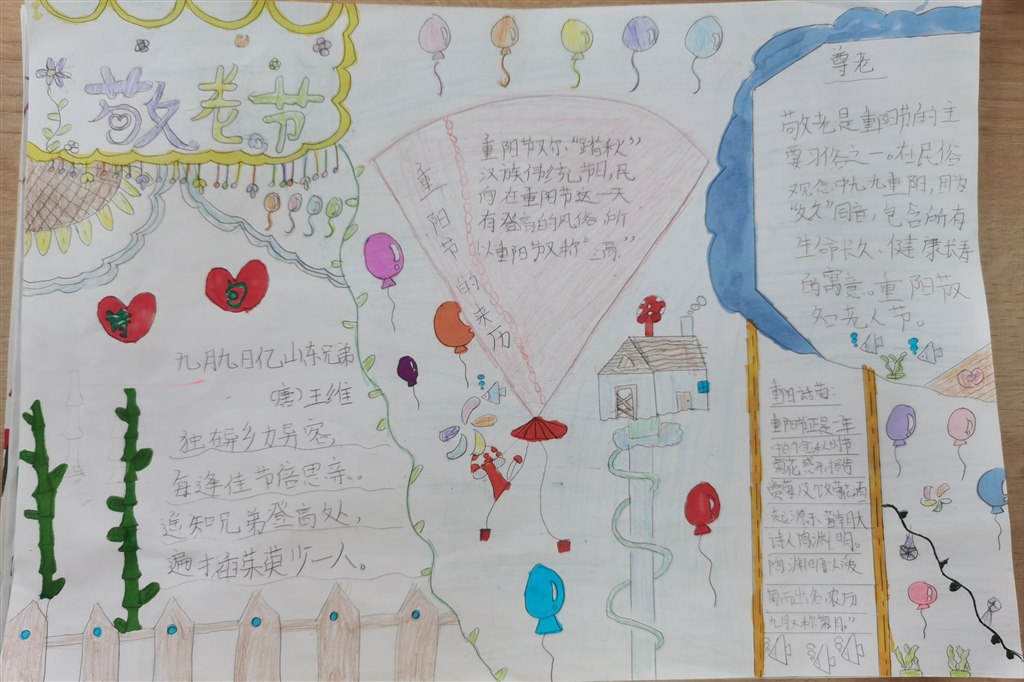 敬老节
诗句
九月九日亿山东兄弟
（唐）王维
独在异乡力异客，
每逢佳节倍思亲。
遥知兄弟登高处，
遍才插茱萸少一人。
重阳节的来历
重阳节又尔“踏秋”
汉族传统节日，民
间在重阳节这一天
有登高的风俗，所
以重阳节又称“高”
尊老
敬老是重阳节的主
要习俗之一。在民俗
观念中九九重阳，因为
“久久”同音，包含所有
生命长久、健康长寿
的寓意。重阳节又
知老人节。
重阳节正是一年
的金秋时节
菊花盛开
赏菊及饮菊花酒
起源于晋朝大
诗人陶渊明。
陶渊明
农历
九月称菊月。”